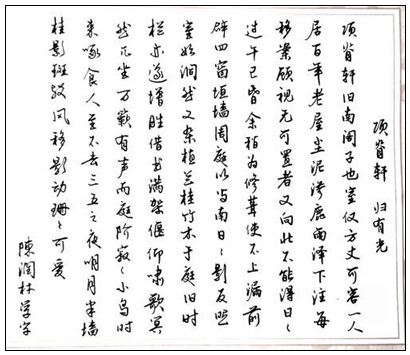 项脊轩 归有光
项脊轩旧南阁子也室仅方丈可容一人
居百年老屋尘泥渗漉雨泽下注每
移案顾视无可置者又向北不能得日々
过午已昏余稍为修葺使不上漏前
辟四窗垣墙周庭以当南日々影反照
室始洞然又杂植兰桂竹木于庭旧时
栏亦遂增胜借书满架偃仰啸歌冥
然兀坐万籁有声而庭阶寂々小鸟时
来啄食人至不去三五之夜明月半墙
桂影斑驳风移影动珊々可爱
陳润林学字